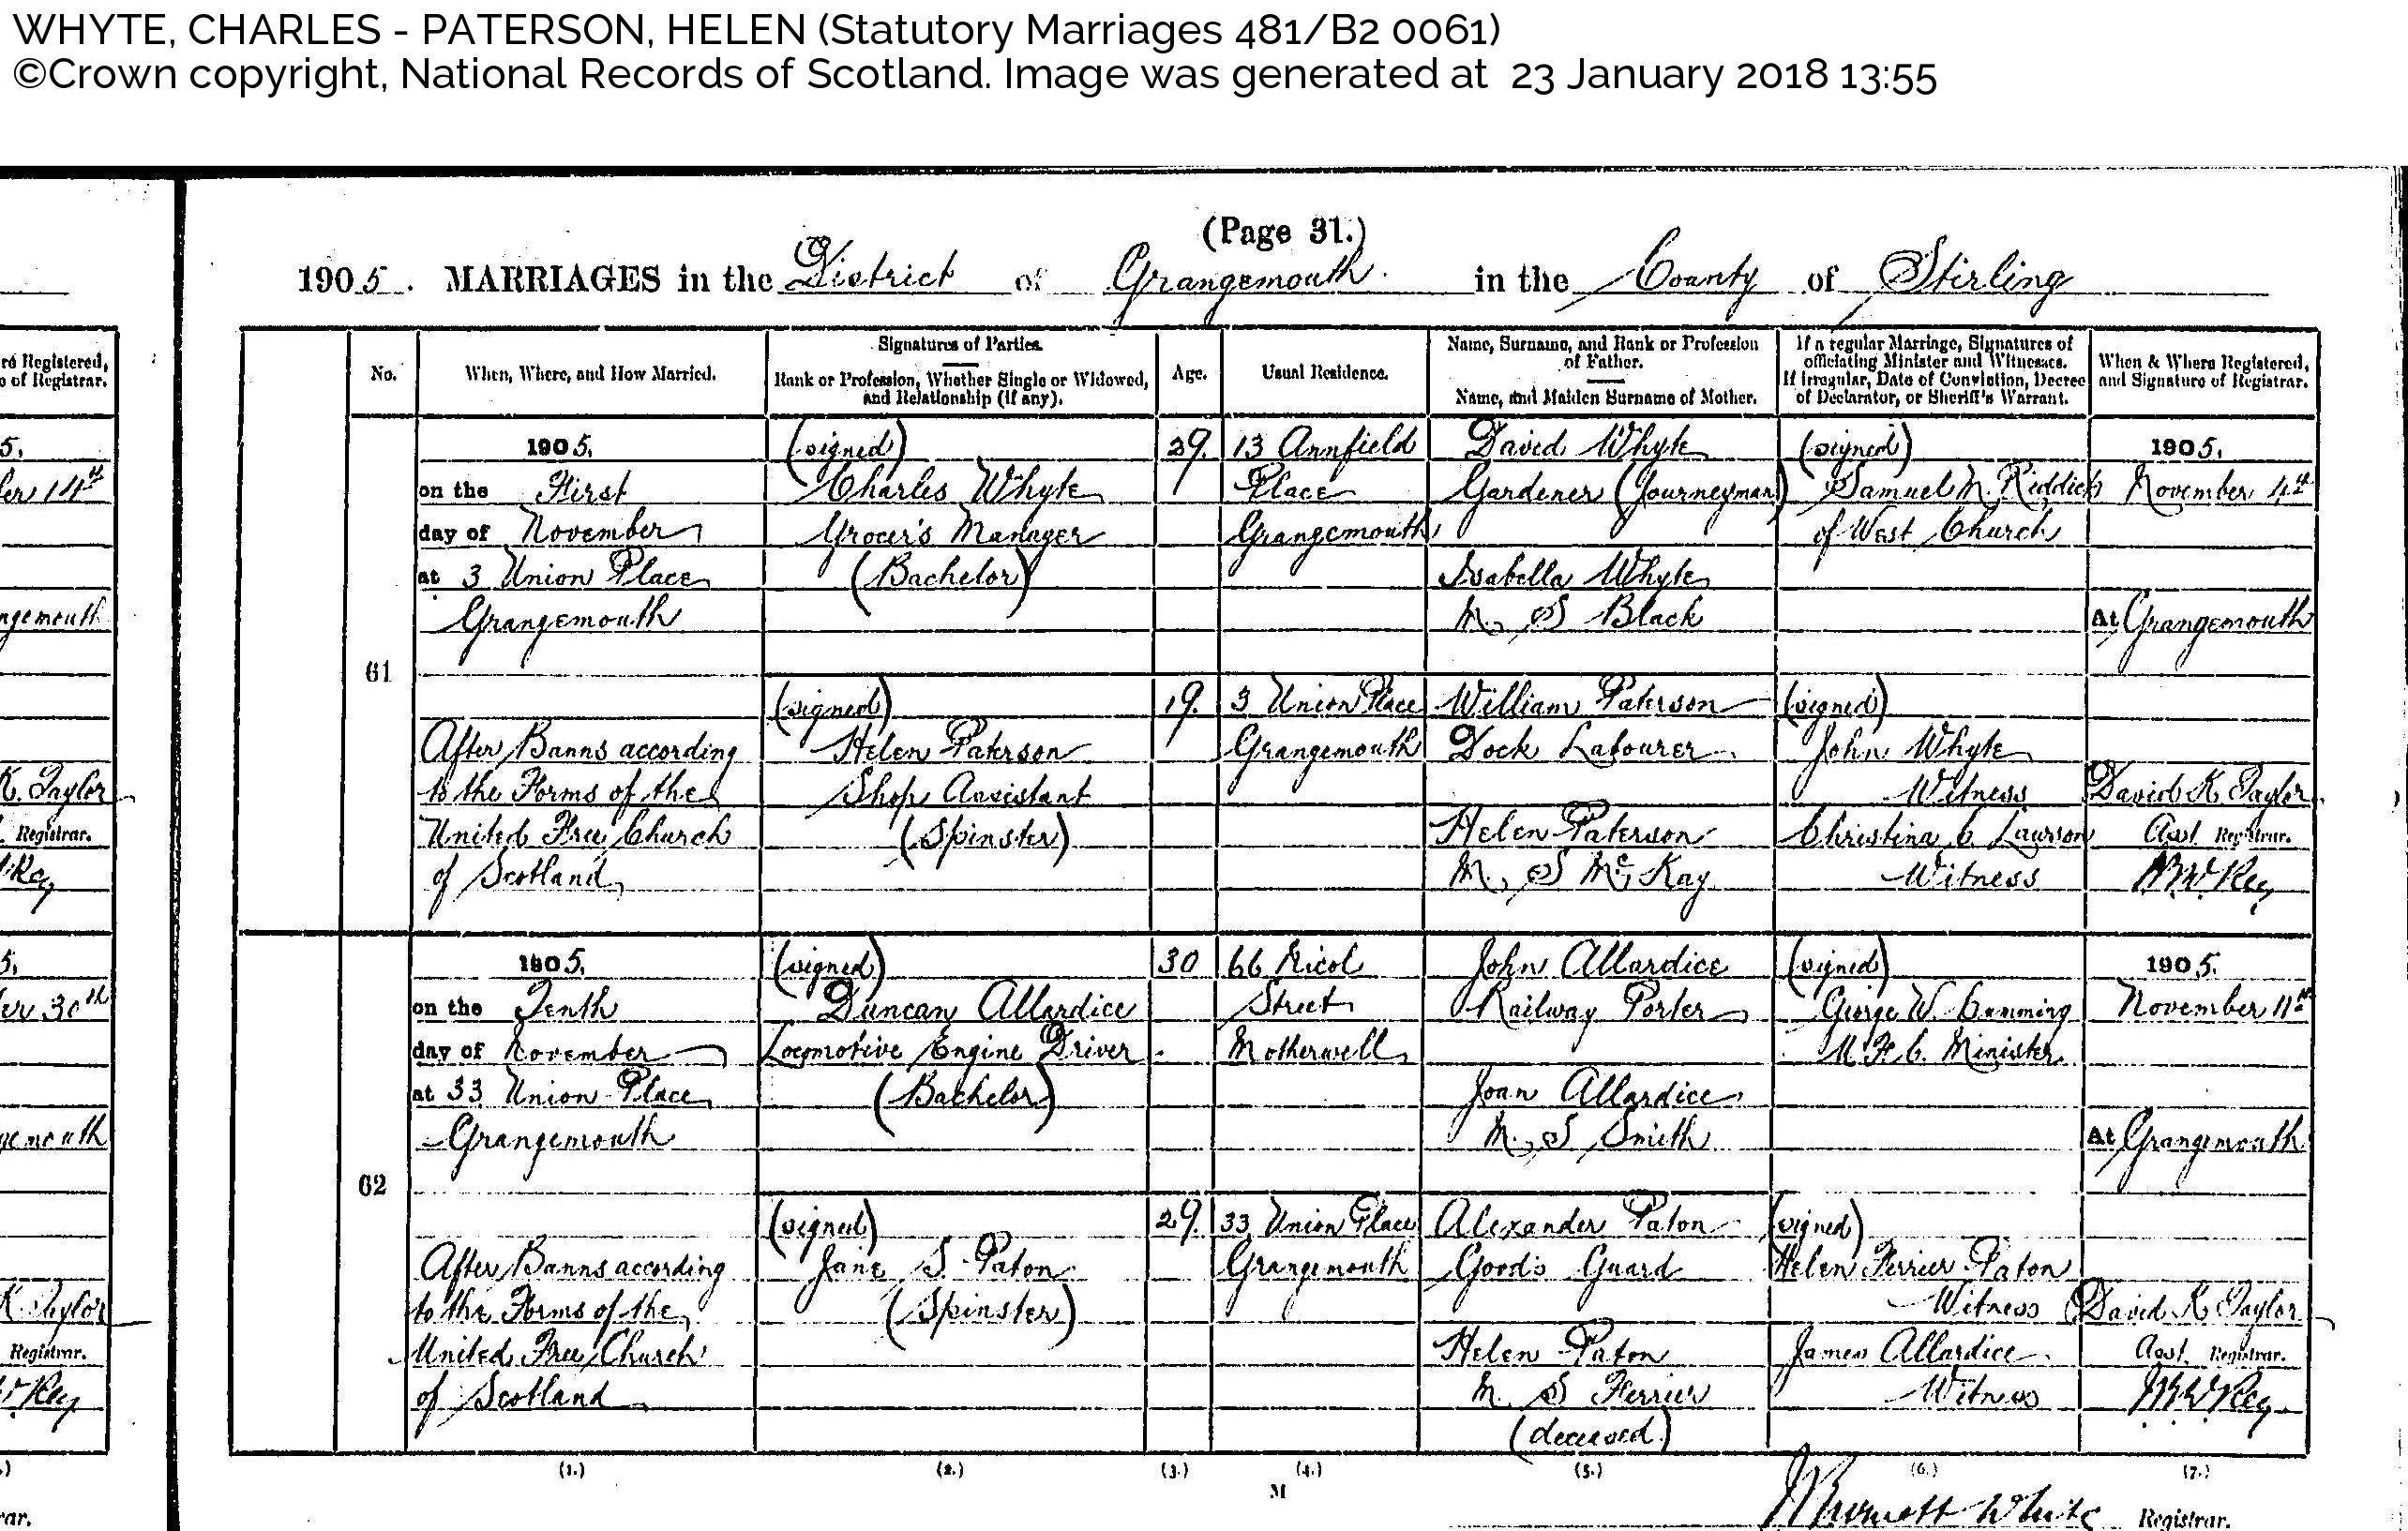 WHYTE, CHARLES - PATERSON, HELEN (Statutory Marriages 481/B2 0061)
©Crown copyright, National Records of Scotland. Image was generated at 23 January 2018 13:55
(Page 31.)
1905. MARRIAGES in the District of Grangemouth in the County of Stirling
No.
When, Where, and How Married.
Signatures of Parties.
Rank or Profession, Whether Single or Widowed,
and Relationship (if any).
Age.
Usual Residence.
Name, Surname, and Rank or Profession
of Father.
Name, and Maiden Surname of Mother.
If a regular Marriage, Signatures of
officiating Minister and Witnesses.
If irregular, Date of Conviction, Decree
of Declarator, or Sheriff's Warrant.
When & Where Registered,
and Signature of Registrar.
61
1905.
on the First
day of November
at 3 Union Place
Grangemouth
After Banns according
to the Forms of the
United Free Church
of Scotland
(signed)
Charles Whyte
Grocer's Manager
(Bachelor)
29.
13 Annfield
Place
Grangemouth
David Whyte
Gardener (Journeyman)
Isabella Whyte
M. S Black
(signed)
Samuel M. Riddick
of West Church
1905.
November 4th
At Grangemouth
(signed)
Helen Paterson
Shop Assistant
(Spinster)
19.
3 Union Place
Grangemouth
William Paterson
Dock Labourer
Helen Paterson
M. S McKay
(signed)
John Whyte
Witness
Christina C. Lawson
Witness
David K. Taylor
Asst. Registrar.
62
1905.
on the Tenth
day of November
at 33 Union Place
Grangemouth
After Banns according
to the Forms of the
United Free Church
of Scotland
(signed)
Duncan Allardice
Locomotive Engine Driver
(Bachelor)
30
66 Nicol
Street
Motherwell
John Allardice
Railway Porter
Joan Allardice
M. S Smith
(signed)
George W. Cumming
U. F. C. Minister
1905.
November 11th
At Grangemouth
(signed)
Jane S. Paton
(Spinster)
29.
33 Union Place
Grangemouth
Alexander Paton
Goods Guard
Helen Paton
M. S Ferrier
(deceased)
(signed)
Helen Ferrier Paton
Witness
James Allardice
Witness
David K. Taylor
Asst. Registrar.
(1.) (2.) (3.) (4.) (5.) (6.) (7.)
M
White Registrar.